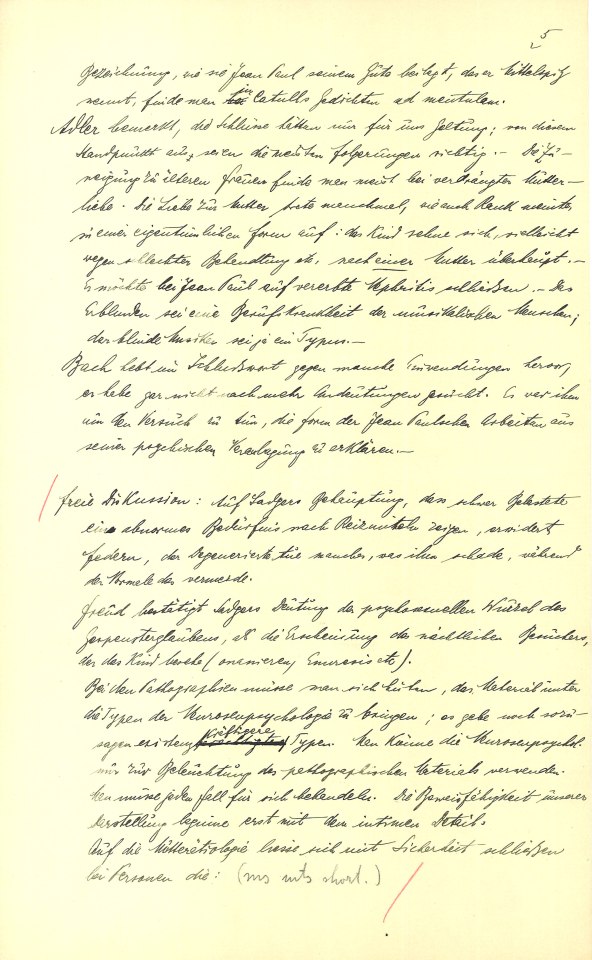 5
Bezeichnung, wie sie Jean Paul seinem Güts beilegt, das er Mittelspitz
nennt, finde man in Catulls Gedichten ad mentulam.
Adler bemerkt, die Schlüsse hätten nur für uns Geltung; von diesem
Standpunkt aus seien die meisten Folgerungen richtig. — Die Zu-
neigung zu älteren Frauen finde man meist bei verdrängter Mutter-
liebe. Die Liebe zur Mutter trete manchmal, wie auch Rank meinte,
in einer eigentümlichen Form auf: das Kind sehne sich, vielleicht
wegen schlechter Behandlung etc, nach einer Mutter überhaupt. —
Er möchte bei Jean Paul auf vererbte Nephritis schließen. — Das
Erblinden sei eine Berufskrankheit der musikalischen Menschen;
der blinde Musiker sei ja ein Typus. —
Bach hebt im Schlußwort gegen manche Einwendungen hervor,
er habe gar nicht nach mehr Andeutungen gesucht. Es war ihm
um den Versuch zu tun, die Form der Jean Paulschen Arbeiten aus
seiner psychischen Veranlagung zu erklären. —
Freie Diskussion: Auf Sadgers Behauptung, dass schwer Belastete
ein abnormes Bedürfnis nach Reizmitteln zeigen, erwidert
Federn, der Degenerierte tue manches, was ihm schade, während
der Normale das vermeide.
Freud bestätigt Sadgers Deutung der psychosexuellen Wurzel des
Gespensterglaubens, als die Erscheinung des nächtlichen Besuchers,
der das Kind besuche (onanieren, Enuresis etc).
Bei den Pathographien müsse man sich hüten, das Material unter
die Typen der Neurosenpsychologie zu bringen; es gebe noch sozu-
sagen existenzkräftigere Typen. Man könne die Neurosenpsychol.
nur zur Beleuchtung des pathographischen Materials verwenden.
Man müsse jeden Fall für sich behandeln. Die Beweisfähigkeit unserer
Darstellung beginne erst mit dem intimen Detail.
Auf die Mutterätiologie lasse sich mit Sicherheit schließen
bei Personen die: (ms nuts short.)